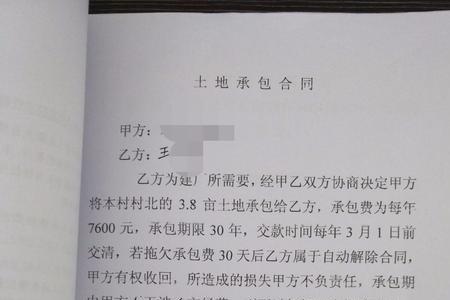 土地承包合同
甲方：
乙方：王
乙方为建厂所需要，经甲乙双方协商决定甲方
将本村村北的 3.8 亩土地承包给乙方，承包费为每年
7600 元，承包期限 30 年，交款时间每年 3 月 1 日前
交清，若拖欠承包费 30 天后乙方属于自动解除合同，
甲方有权收回，所造成的损失甲方不负责任，承包期